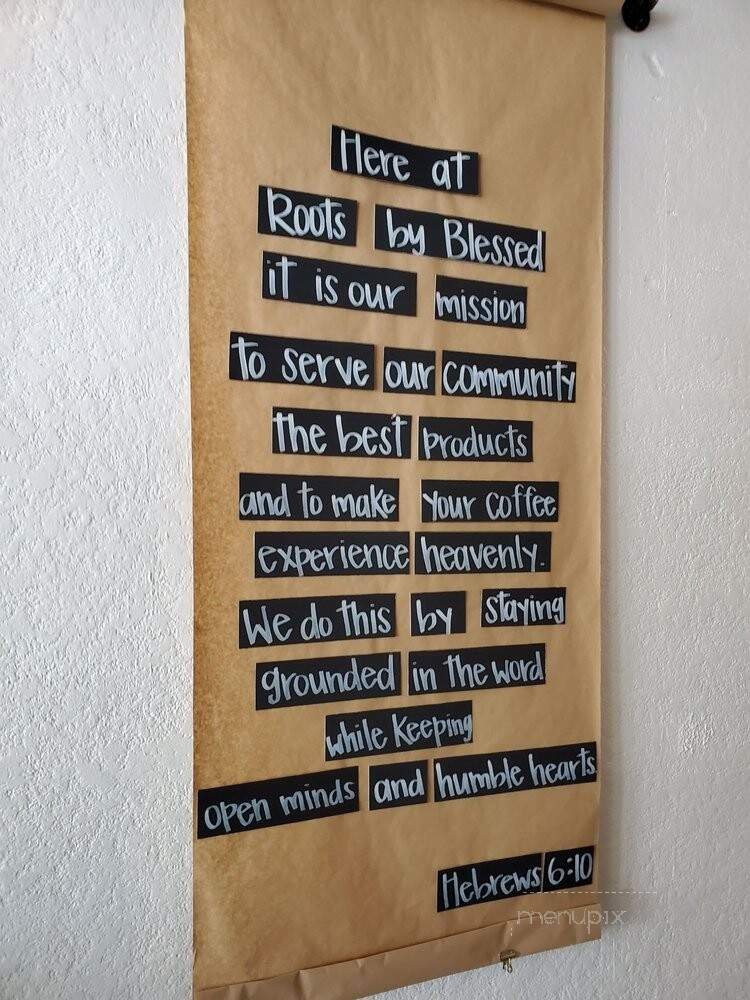 Here at
Roots by Blessed
it is our mission
to serve our community
the best products
and to make your coffee
experience heavenly.
We do this by staying
grounded in the word
while keeping
open minds and humble hearts.
Hebrews 6:10
menupix